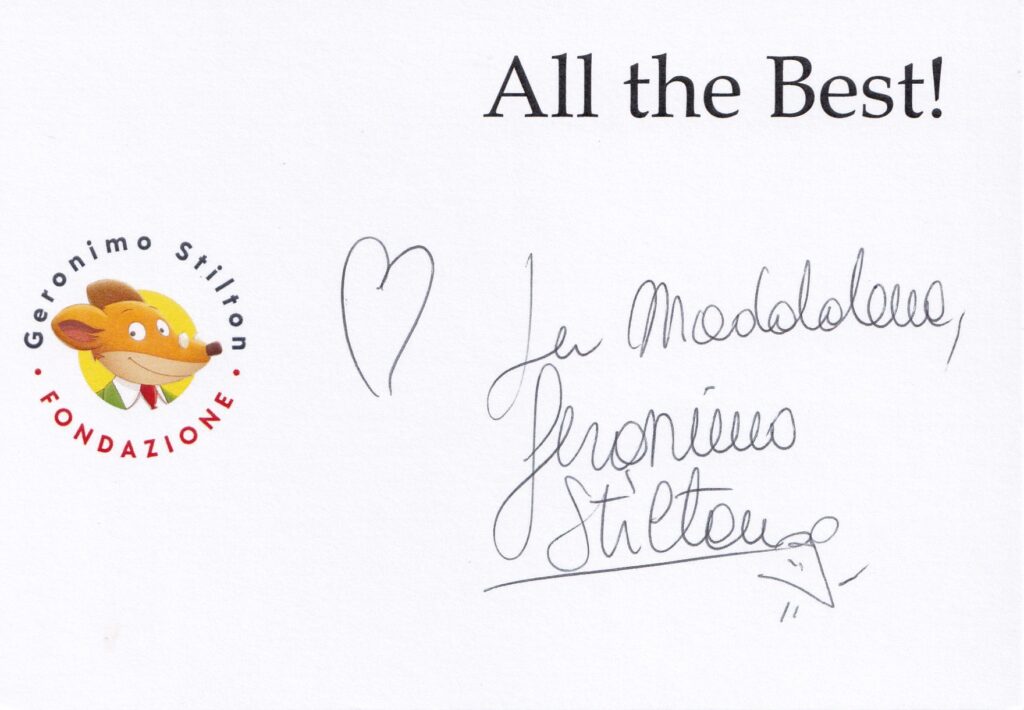 All the Best!
Geronimo Stilton
• FONDAZIONE •
Per Maddalena,
Geronimo
Stilton